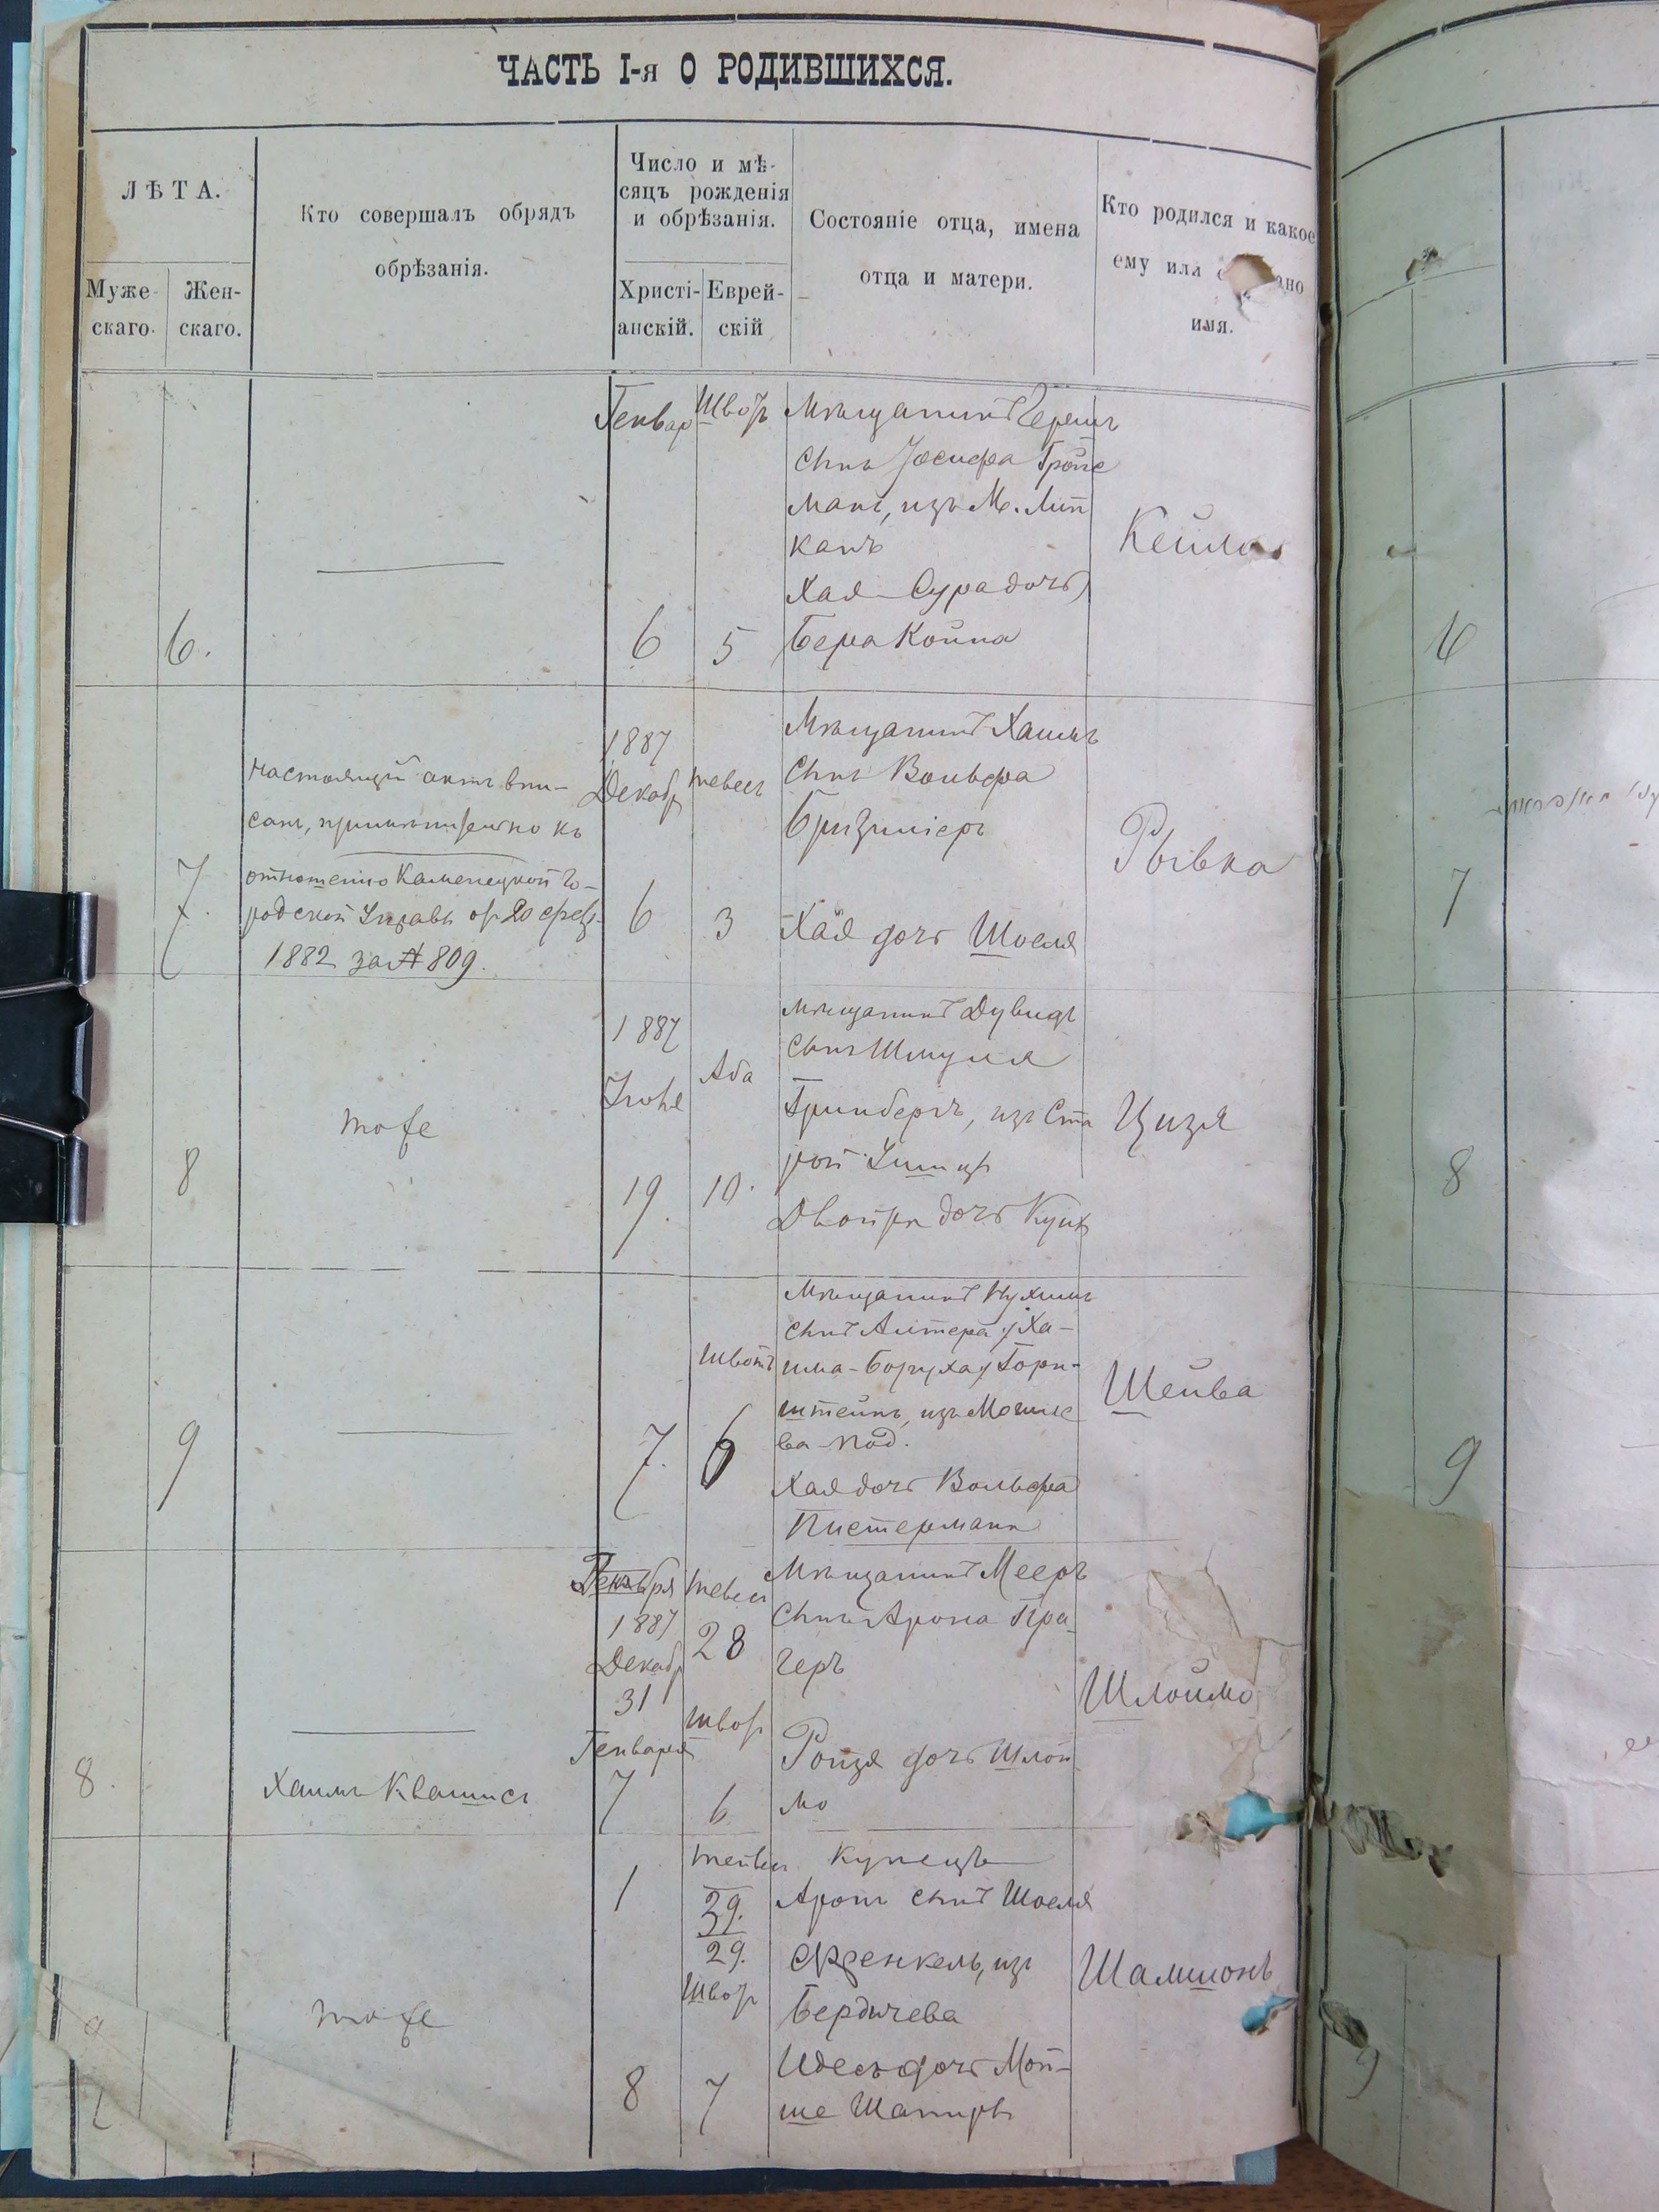 ЧАСТЬ I-я О РОДИВШИХСЯ.
ЛѢТА.
Муже-
скаго.
Жен-
скаго.
Кто совершалъ обрядъ
обрѣзанія.
Число и мѣ-
сяцъ рожденія
и обрѣзанія.
Христі-
анскій.
Еврей-
скій
Состояніе отца, имена
отца и матери.
Кто родился и какое
ему или
имя.
6.
Генвар
6
Швотъ
5
Мѣщанинъ Гершъ
сынъ Іосифа Гройс
манъ, изъ М. Лип
канъ
Хая-Сура дочь
Бера Койна
Кейла
6
7.
Настоящій актъ впи-
санъ, примѣнительно къ
отношенію Каменецкой го-
родской Управы от 20 февр.
1882 за № 809.
1887
Декабр
6
тевесъ
3
Мѣщанинъ Хаимъ
сынъ Вольфа
Хая дочь Шоеля
Рывка
7
8
тоже
1887
Іюля
19.
Аба
10.
мѣщанинъ Дувидъ
сынъ Шмуля
Гринбергъ, изъ Ста
рой Ушицы
Двойра дочь
Цизя
8
9
7.
Швотъ
6
Мѣщанинъ Нухимъ
сынъ Алтера /Ха-
има-Боруха/ Горн-
штейнъ, изъ Могиле
ва-Под.
Хая дочь Вольфа
Пистермана
Шейва
9
8.
Хаимъ Квашисъ
1887
Декабр
31
Генваря
7
тевес
28
швот
6
Мѣщанинъ Мееръ
сынъ Арона Пра-
геръ
Ройзя дочь Шлой
мо
Шлоймо
тоже
1
8
тейвес
29.
29.
Швот
7
Купецъ
Аронъ сынъ Шоеля
Френкель, изъ
Бердичева
Идесъ дочь Мой-
ше Шапиръ
Шамшонъ
9